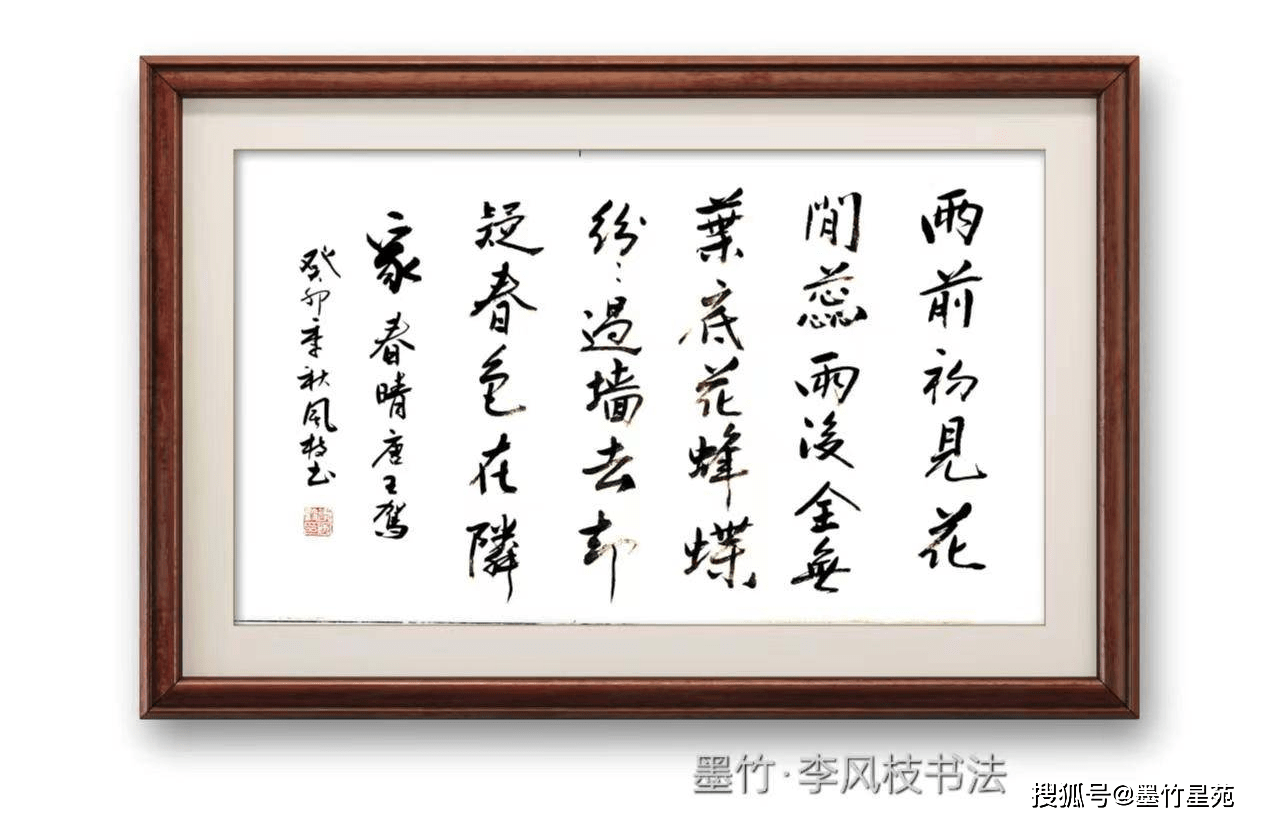 雨前初見花
間蕊雨後全無
葉底花蜂蝶
紛〻過墙去却
疑春色在隣
家 春晴 唐王駕
癸卯季秋风枝书
墨竹·李风枝书法
搜狐号@墨竹星苑